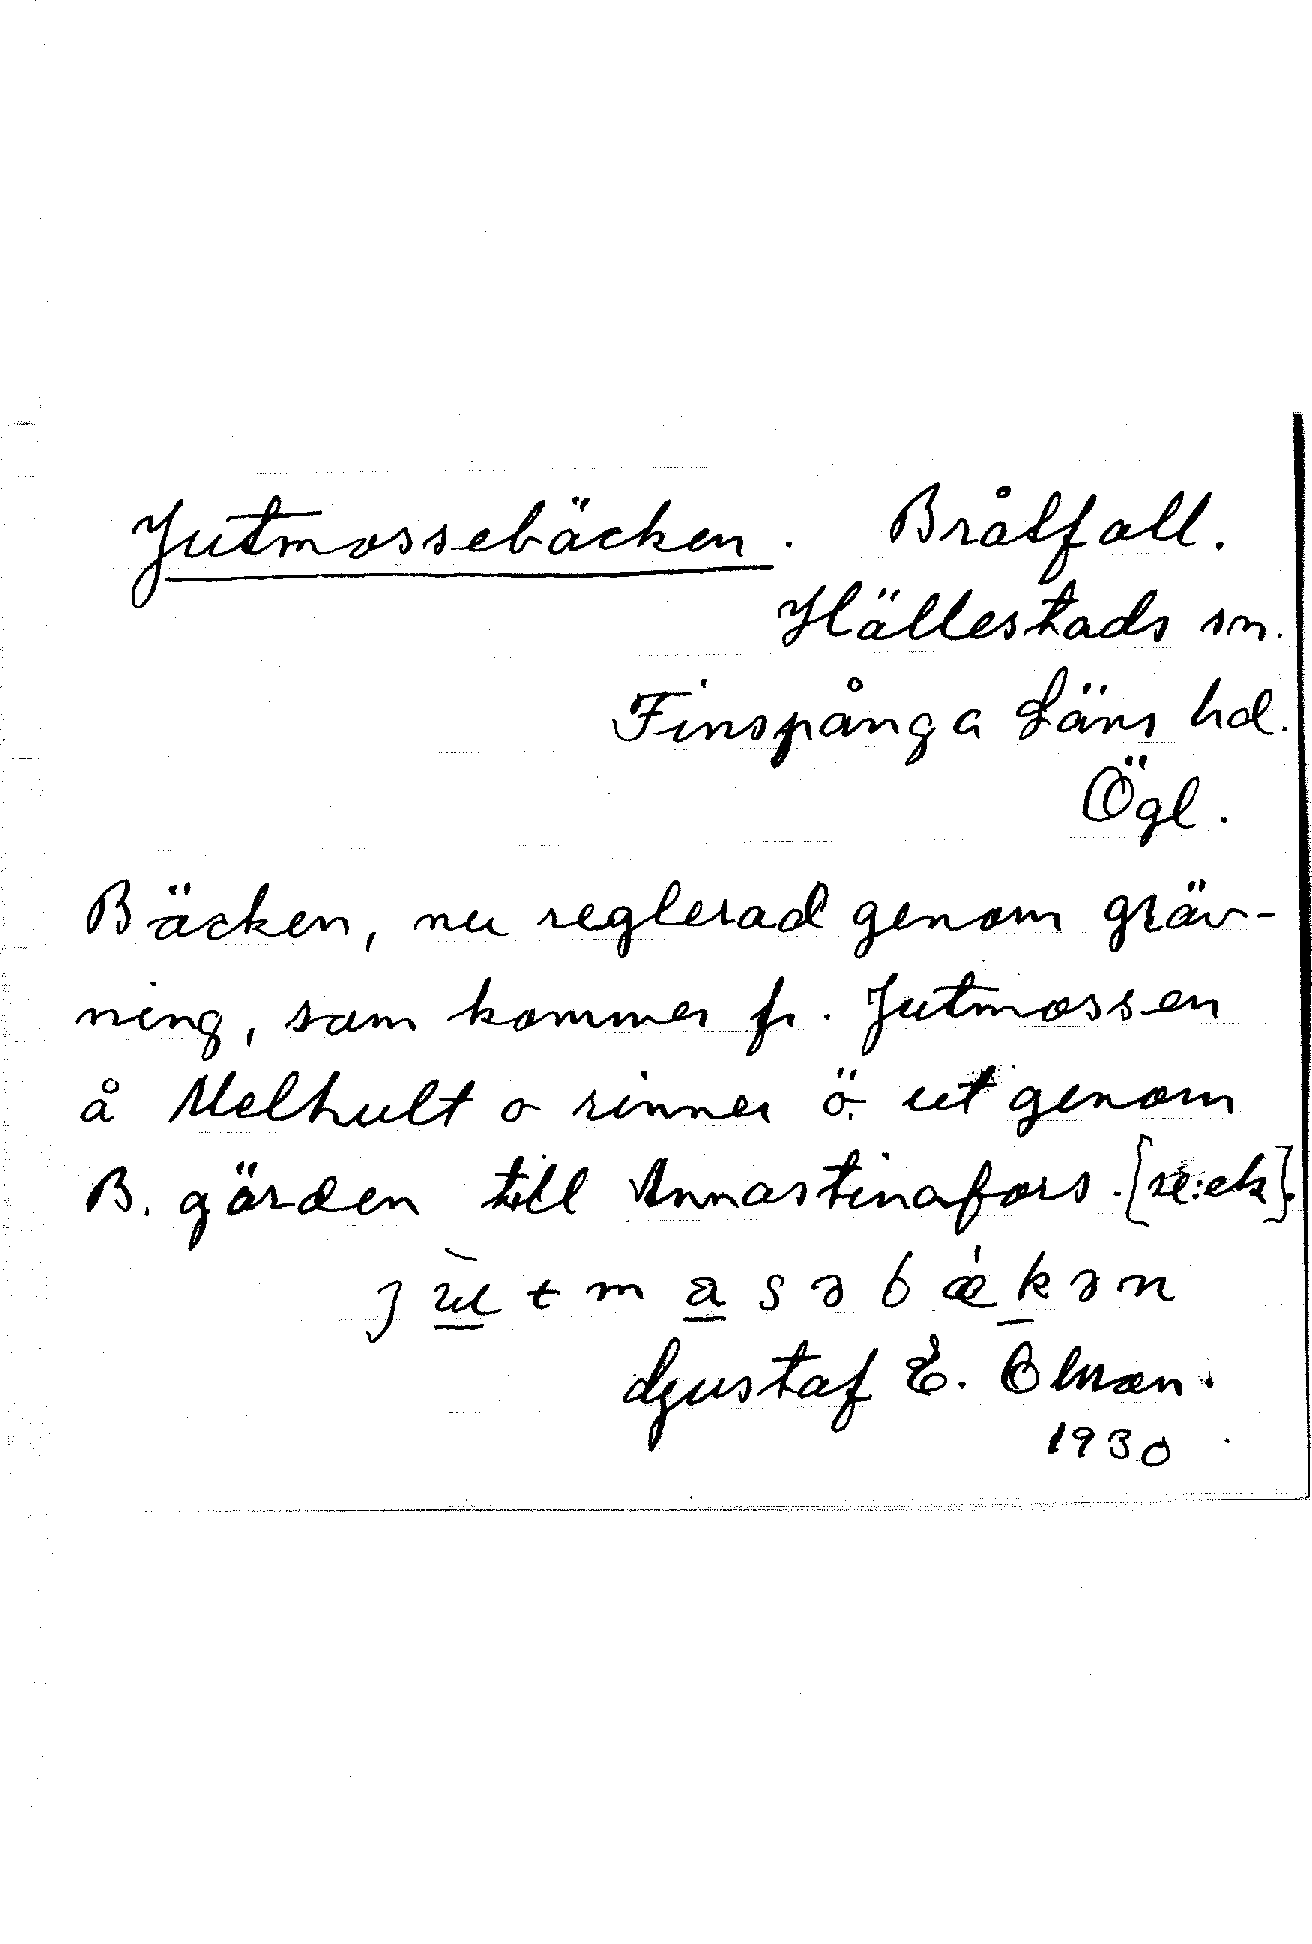 Jutmossebäcken. Bråtfall.
Hällestads sn.
Finspånga Läns hd.
Ögl.
Bäcken, nu reglerad genom gräv-
ning, som kommer fr. Jutmossen
å Melhult o rinner ö. ut genom
B. gärden till Annastinafors. [se: ek].
Gustaf E. Olsson.
1930